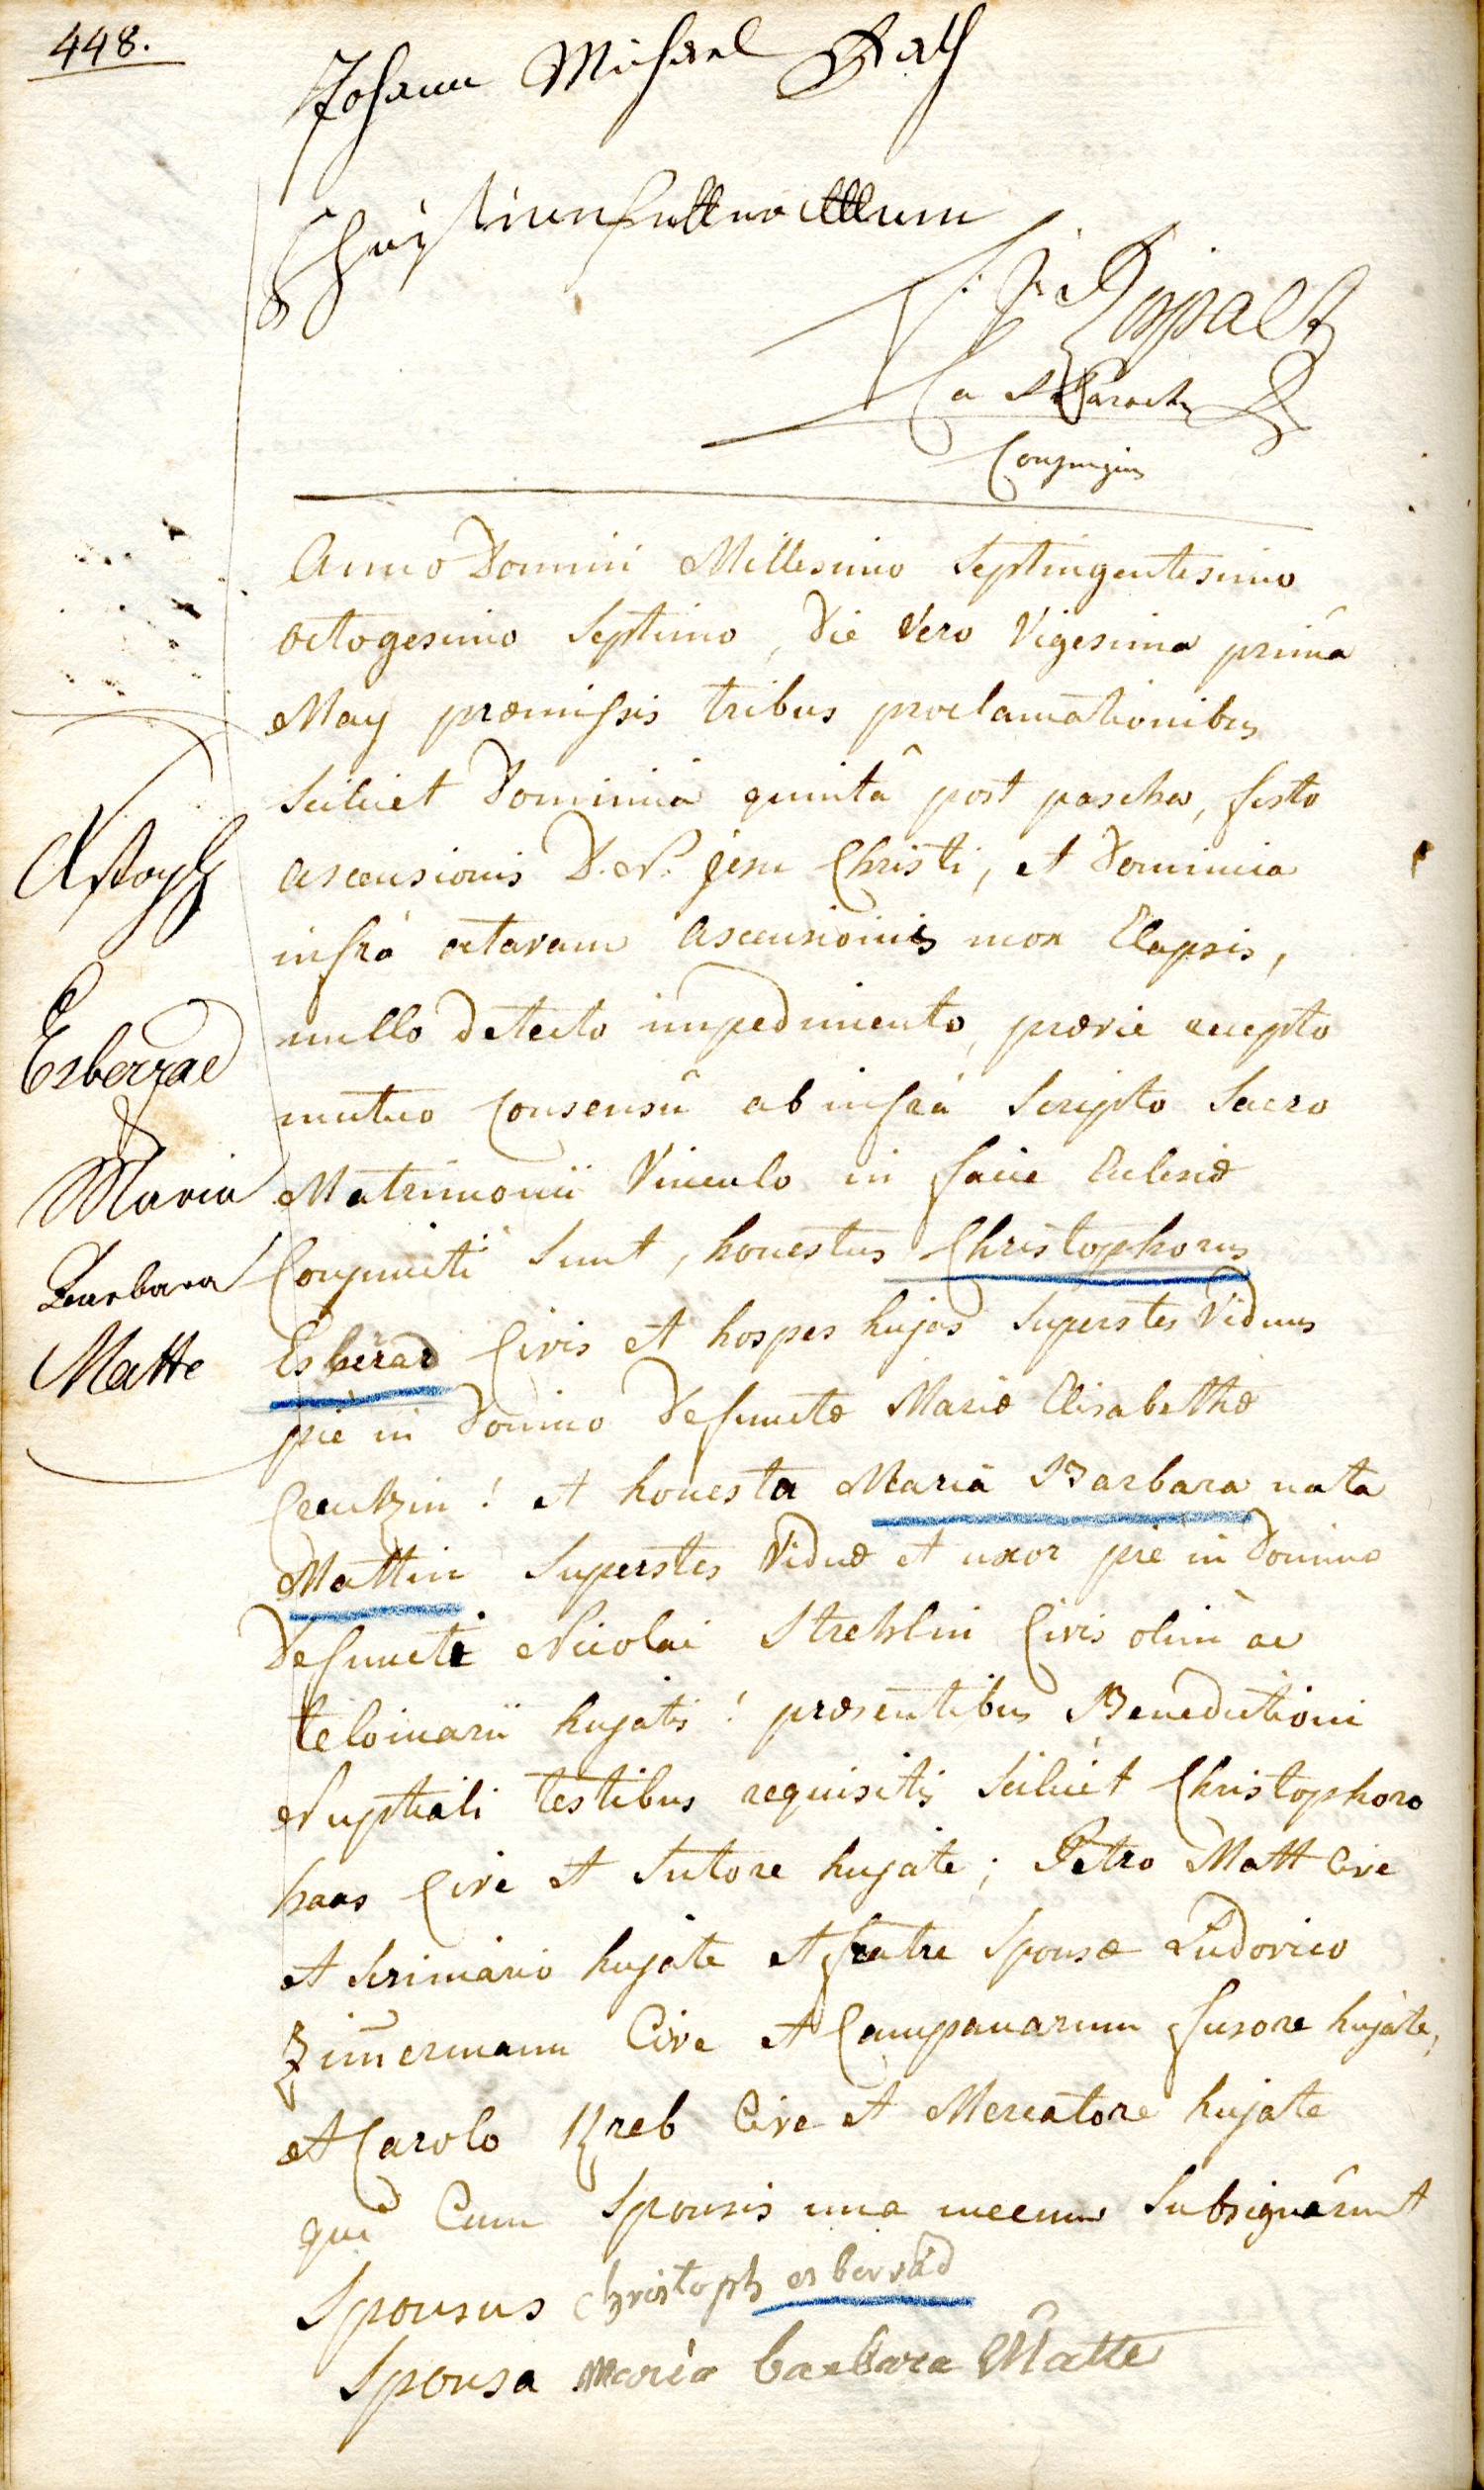 448.
Johann Michael
a Parochi
Conjungius
Anno Domini Millesimo Septingentesimo
octogesimo Septimo, die Vero Vigesima primâ
May præmissis tribus proclamationibus
Scilicet Dominica quintâ post pascha, festo
ascensionis D. N. jesu Christi, et Dominica
infrà octavam ascensionis mox Elapsis,
nullo detecto impedimento, prævie accepto
mutuo Consensû ab infrà Scripto Sacro
Matrimonii Vinculo in facie Eclesiæ
Conjuncti Sunt, honestus Christophorus
Esberard Civis et hospes hujas Superstes Viduus
piè in Domino Defunctæ Mariæ Elisabethæ
Creutzin! et honesta Maria Barbara nata
Mattin Superstes Viduæ et uxor piè in Domino
Defuncti Nicolai Strehlin Civis olim ac
teloinarii hujatis! præsentibus Benedictioni
Nuptiali testibus requisitis Scilicèt Christophoro
haas Cive et Sutore hujate; Petro Matt Cive
et Scriniario hujate et fratre Sponsæ Ludovico
Zim̄ermann Cive et Campanarum fusore hujate,
et Carolo Kreb Cive et Mercatore hujate
qui Cum Sponsis una mecum Subsignârunt
Sponsus christoph esberrad
Sponsa Maria barbara Matte
Esberrad
&
Maria
Barbara
Matte